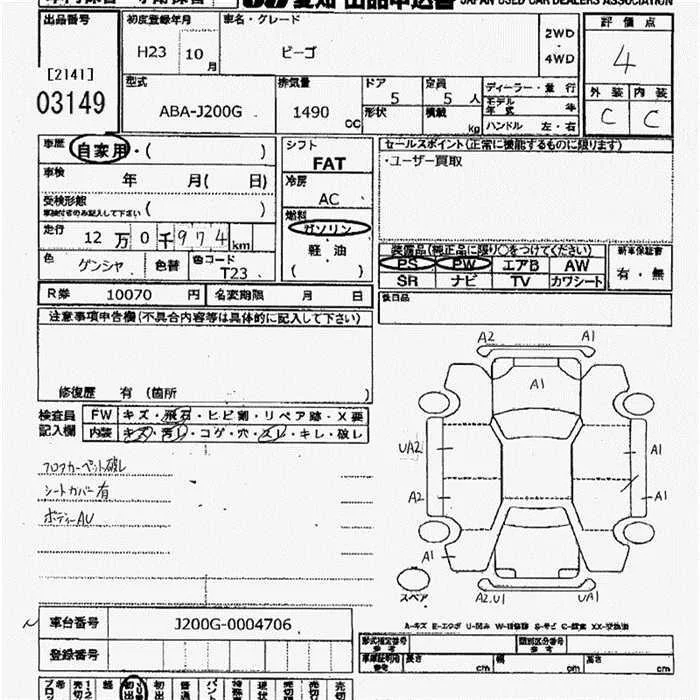 愛知 出品申込書 JAPAN USED CAR DEALERS ASSOCIATION
出品番号 初度登録年月 車名・グレード 評価点
H23 10月 ビーゴ 2WD・4WD 4
[2141]
03149
型式 排気量 ドア 定員 ディーラー・並行 外装 内装
ABA-J200G 1490 CC 5 5人 モデル年式 年 C C
形状 積載 kg ハンドル 左・右
車歴 自家用・( ) シフト セールスポイント(正常に機能するものに限ります)
FAT ・ユーザー買取
車検 年 月( 日) 冷房
AC
受検形態 ( )
車検付きのみ記入して下さい
燃料
ガソリン
走行 12万0千974km 軽・油
( )
装備品(純正品に限り○をつけてください) 新車保証書
色 ゲンシヤ 色替 色コード T23
PS PW エアB AW 有・無
SR ナビ TV カワシート
R券 10070円 名変期限 月 日
注意事項申告欄(不具合内容等は具体的に記入して下さい)
修復歴 有 (箇所 )
検査員記入欄 FW キズ・飛石・ヒビ割・リペア跡・X要
内装 キズ・汚れ・コゲ・穴・スレ・キレ・破レ
フロアカーペット破レ
シートカバー有
ボディーAU
A2 A1
A1
UA2 A1
A2 A1
A1
スペア A2.U1 UA1
A-キズ E-エクボ U-凹み W-補修跡 S-サビ C-腐食 XX-交換済
車台番号 J200G-0004706
登録番号
型式指定番号 参考 類別区分番号 参考
車庫証明用 参考 長さ cm 幅 cm 高さ cm